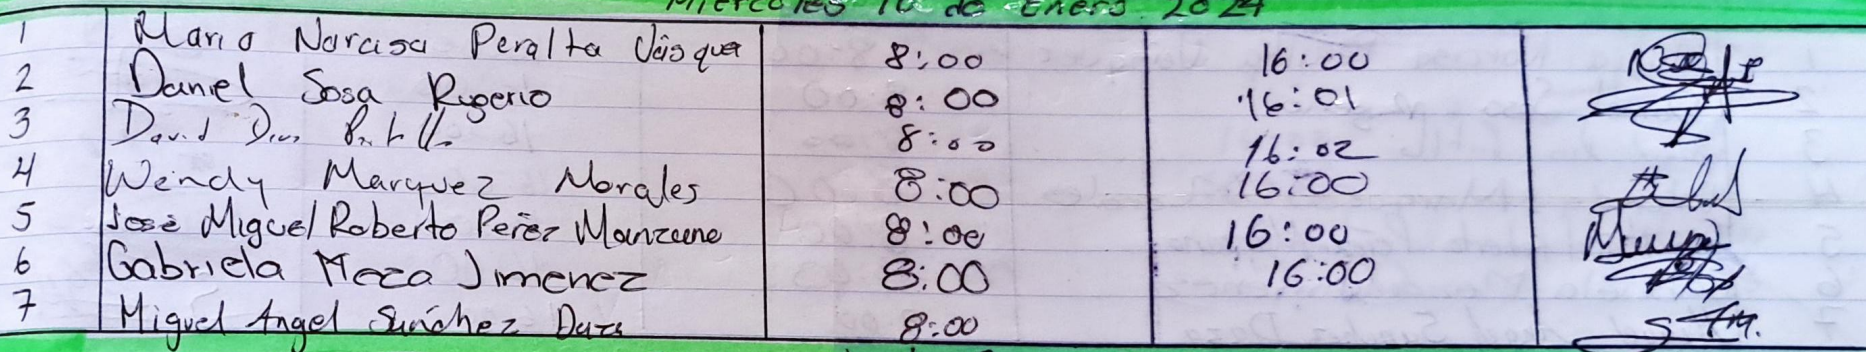 Miercoles 10 de Enero 2024
1 Mario Narcisa Peralta Vásquez 8:00 16:00
2 Daniel Sosa Rugerio 8:00 16:01
3 David 8:00 16:02
4 Wendy Marquez Morales 8:00 16:00
5 José Miguel Roberto Perez 8:00 16:00
6 Gabriela Meza Jimenez 8:00 16:00
7 Miguel Angel Sanchez 8:00